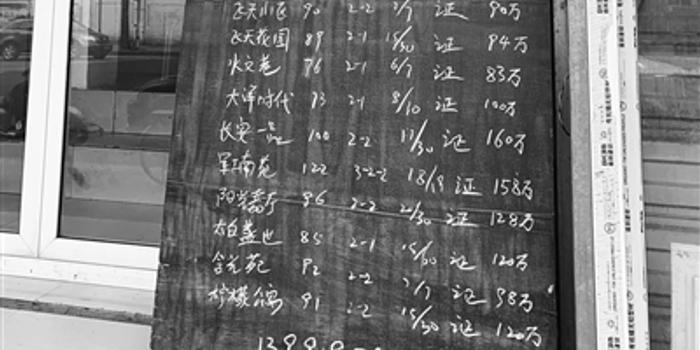 飞天小区 90 2-2 2/7 证 90万
飞天花园 89 2-1 15/30 证 94万
水文巷 76 2-1 6/7 证 83万
大洋时代 83 2-1 8/10 证 100万
长安一品 100 2-2 17/30 证 160万
军瑞苑 122 3-2-2 18/9 证 158万
阳光嘉 96 2-2 21/30 证 128万
太白盖也 85 2-1 15/20 证 120万
含光苑 82 2-2 7/7 证 98万
柠檬 91 2-2 15/30 证 120万